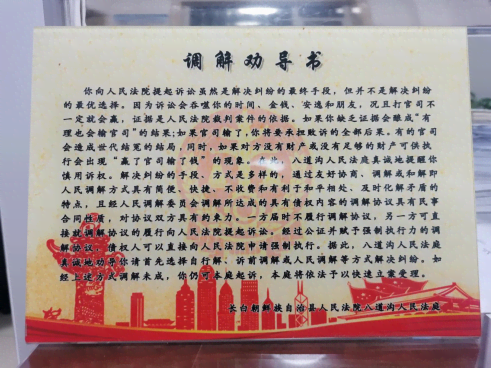 调解劝导书
你向人民法院提起诉讼虽然是解决纠纷的最终手段，但并不是解决纠纷
的最优选择。因为诉讼会吞噬你的时间、金钱、安逸和朋友，况且打官司不
一定就会赢，证据是人民法院裁判案件的依据。如果你缺乏证据会酿成“有
理也会输官司”的结果；如果官司输了，你将要承担败诉的全部后果。有的官司
会造成世代结冤的结局，同时，如果对方没有财产或没有足够的财产可供执
行会出现“赢了官司输了钱”的现象。在此，八道沟人民法庭真诚地提醒你
慎用诉权。解决纠纷的手段、方式是多样的，通过友好协商、调解或和解即
人民调解方式具有简便、快捷、不收费和有利于和平相处、及时化解矛盾的
特点，且经人民调解委员会调解所达成的具有债权内容的调解协议具有民事
合同性质，对协议双方具有约束力。一方届时不履行调解协议，另一方可直
接就调解协议的履行向人民法院提起诉讼。经过公证并赋予强制执行力的调
解协议，债权人可以直接向人民法院申请强制执行。据此，八道沟人民法庭
真诚地劝导你请首先选择自行解、诉前调解或人民调解等方式解决纠纷。如
经上述方式调解未成，你仍可本庭起诉，本庭将依法予以快速立案受理。
长白朝鲜族自治县人民法院八道沟人民法庭